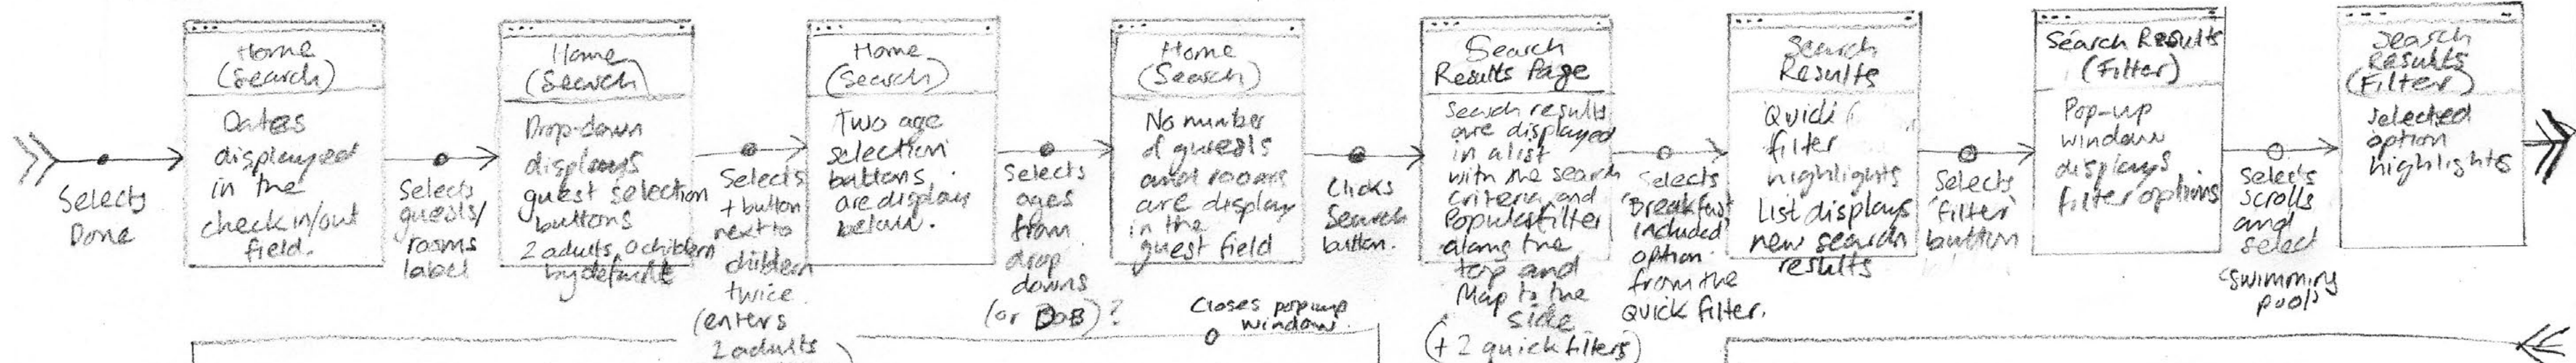 Selects
Done
Home
(Search)
Dates
displayed
in the
check in/out
field.
Selects
guests/
rooms
label
Home
(Search)
Drop-down
displays
guest selection
buttons
2 adults, 0 children
by default
Selects
+ button
next to
children
twice
(enters
2 adults
Home
(Search)
Two age
selection
buttons
are display
below.
Selects
ages
from
drop
downs
(or DoB)?
Home
(Search)
No number
of guests
and rooms
are display
in the
guest field
Closes popup
window.
Clicks
Search
button.
Search
Results Page
Search results
are displayed
in a list
with the search
criteria and
Popular filter
along the
top and
Map to the
side
(+ 2 quick filters)
Selects
'Breakfast
included'
option
from the
Quick filter.
Search
Results
Quick
filter
highlights
List displays
new search
results
Selects
'filter'
button
Search Results
(Filter)
Pop-up
window
displays
filter options
Selects
scrolls
and
select
'swimming
pool'
Search
Results
(Filter)
Selected
option
highlights